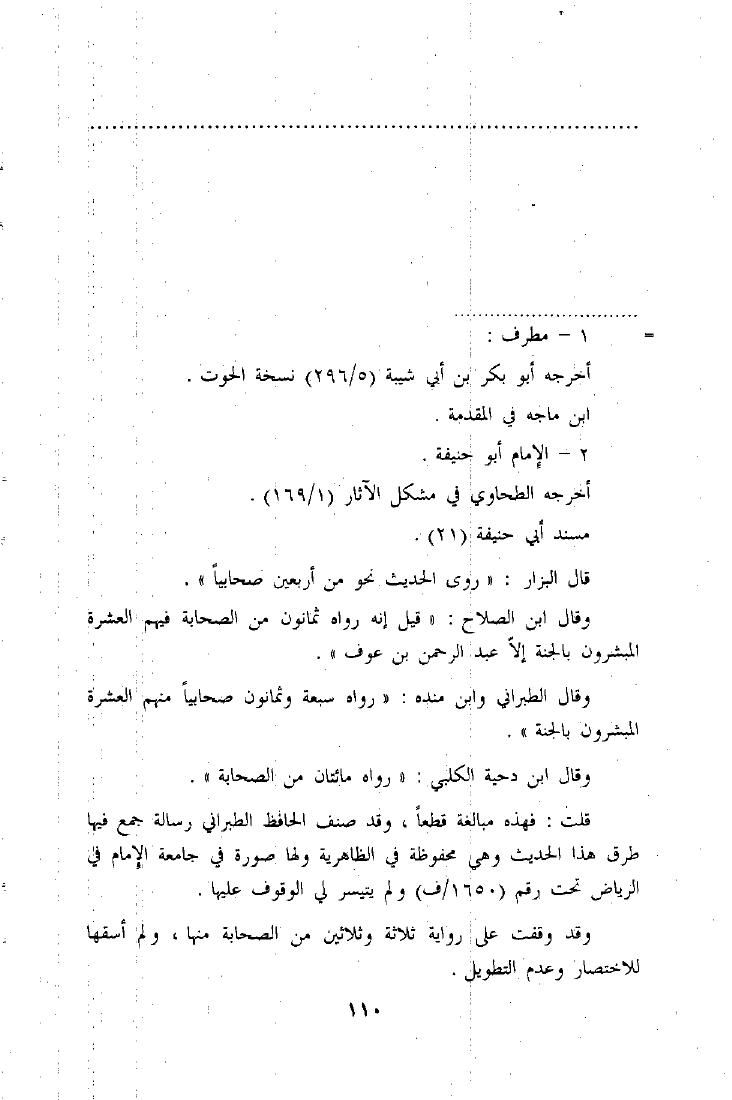 = ١ - مطرف :
أخرجه أبو بكر بن أبي شيبة (٢٩٦/٥) نسخة الحوت .
ابن ماجه في المقدمة .
٢ - الإمام أبو حنيفة .
أخرجه الطحاوي في مشكل الآثار (١٦٩/١) .
مسند أبي حنيفة (٢١) .
قال البزار : « روى الحديث نحو من أربعين صحابياً » .
وقال ابن الصلاح : « قيل إنه رواه ثمانون من الصحابة فيهم العشرة
المبشرون بالجنة إلاّ عبد الرحمن بن عوف » .
وقال الطبراني وابن منده : « رواه سبعة وثمانون صحابياً منهم العشرة
المبشرون بالجنة » .
وقال ابن دحية الكلبي : « رواه مائتان من الصحابة » .
قلت : فهذه مبالغة قطعاً ، وقد صنف الحافظ الطبراني رسالة جمع فيها
طرق هذا الحديث وهي محفوظة في الظاهرية ولها صورة في جامعة الإمام في
الرياض تحت رقم (١٦٥٠/ف) ولم يتيسر لي الوقوف عليها .
وقد وقفت على رواية ثلاثة وثلاثين من الصحابة منها ، ولم أسقها
للاختصار وعدم التطويل .
١١٠